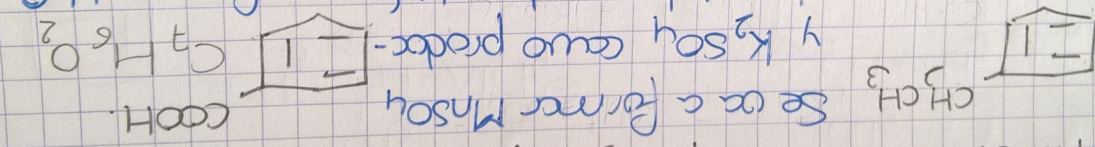 CH₂CH₃
Se va a formar MnSO₄
y K₂SO₄ como produc-
COOH.
C₇H₆O₂